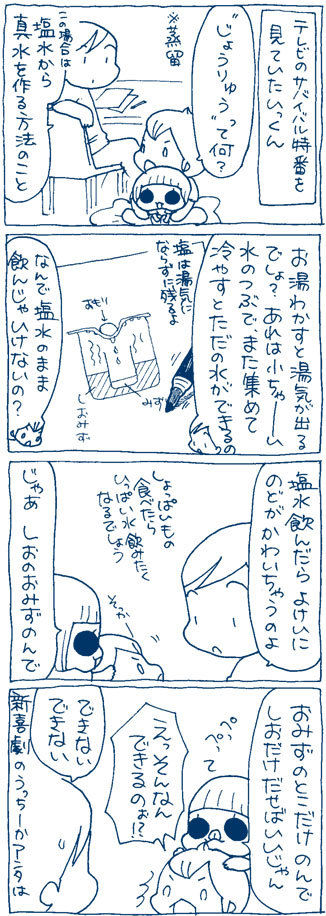 テレビのサバイバル特番を
見ていたいっくん
“じょうりゅう”
って何?
※蒸留
この場合は
塩水から
真水を作る方法のこと
お湯わかすと湯気が出る
でしょ?あれは小ちゃーい
水のつぶで、また集めて
冷やすとただの水ができるの
塩は湯気に
ならずに残るよ
おもり
みず
しおみず
なんで塩水のまま
飲んじゃいけないの?
塩水飲んだらよけいに
のどがかわいちゃうのよ
しょっぱいもの
食べたら
いっぱい水飲みたく
なるでしょう
そっか
じゃあ しおのおみずのんで
おみずのとこだけのんで
しおだけだせばいいじゃん
ぺっぺっ
って
えっそんなん
できるのぉ!?
できない
できない
新喜劇のうっちーかアンタは